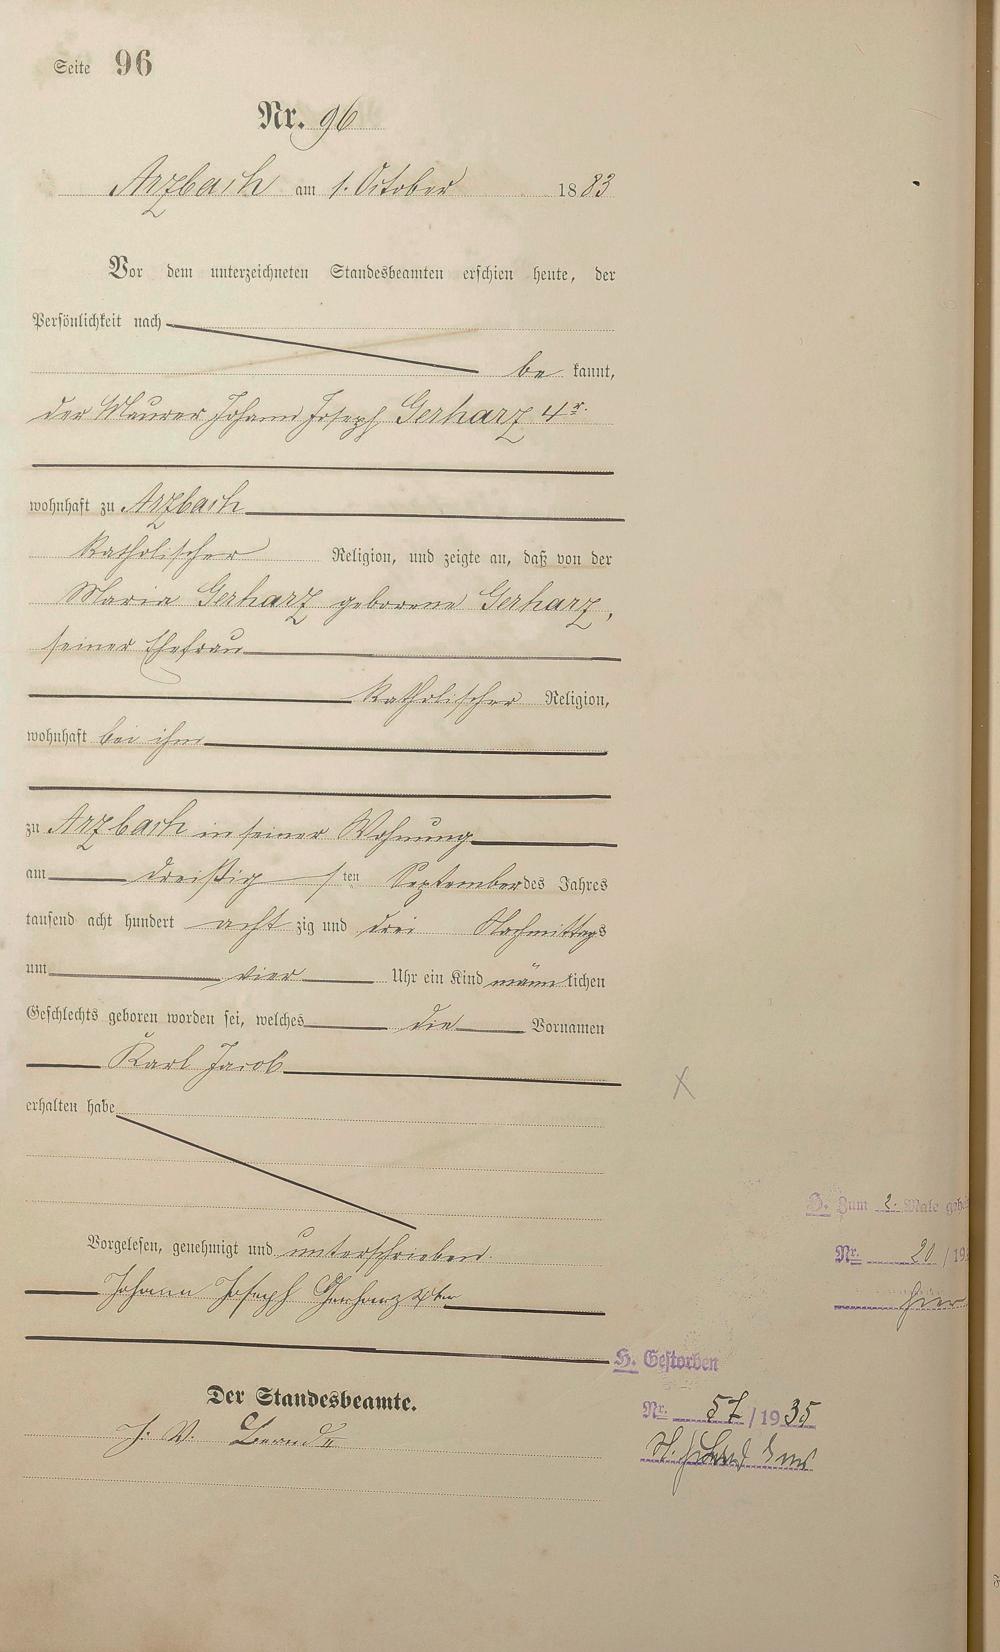 Seite 96
Nr. 96
Arzbach am 1. October 1883
Vor dem unterzeichneten Standesbeamten erschien heute, der
Persönlichkeit nach
be kannt,
der Maurer Johann Joseph Gerharz 4r.
wohnhaft zu Arzbach
katholischer Religion, und zeigte an, daß von der
Maria Gerharz geborene Gerharz,
seiner Ehefrau
katholischer Religion,
wohnhaft bei ihm
zu Arzbach in seiner Wohnung
am dreißigsten September des Jahres
tausend acht hundert achtzig und drei Nachmittags
um vier Uhr ein Kind männlichen
Geschlechts geboren worden sei, welches die Vornamen
Karl Jacob
erhalten habe
Vorgelesen, genehmigt und unterschrieben.
Johann Joseph Gerharz 4ter
Der Standesbeamte.
J. V.
H. Zum 2. Male
Nr. 20/19
hier
H. Gestorben
Nr. 57/1935